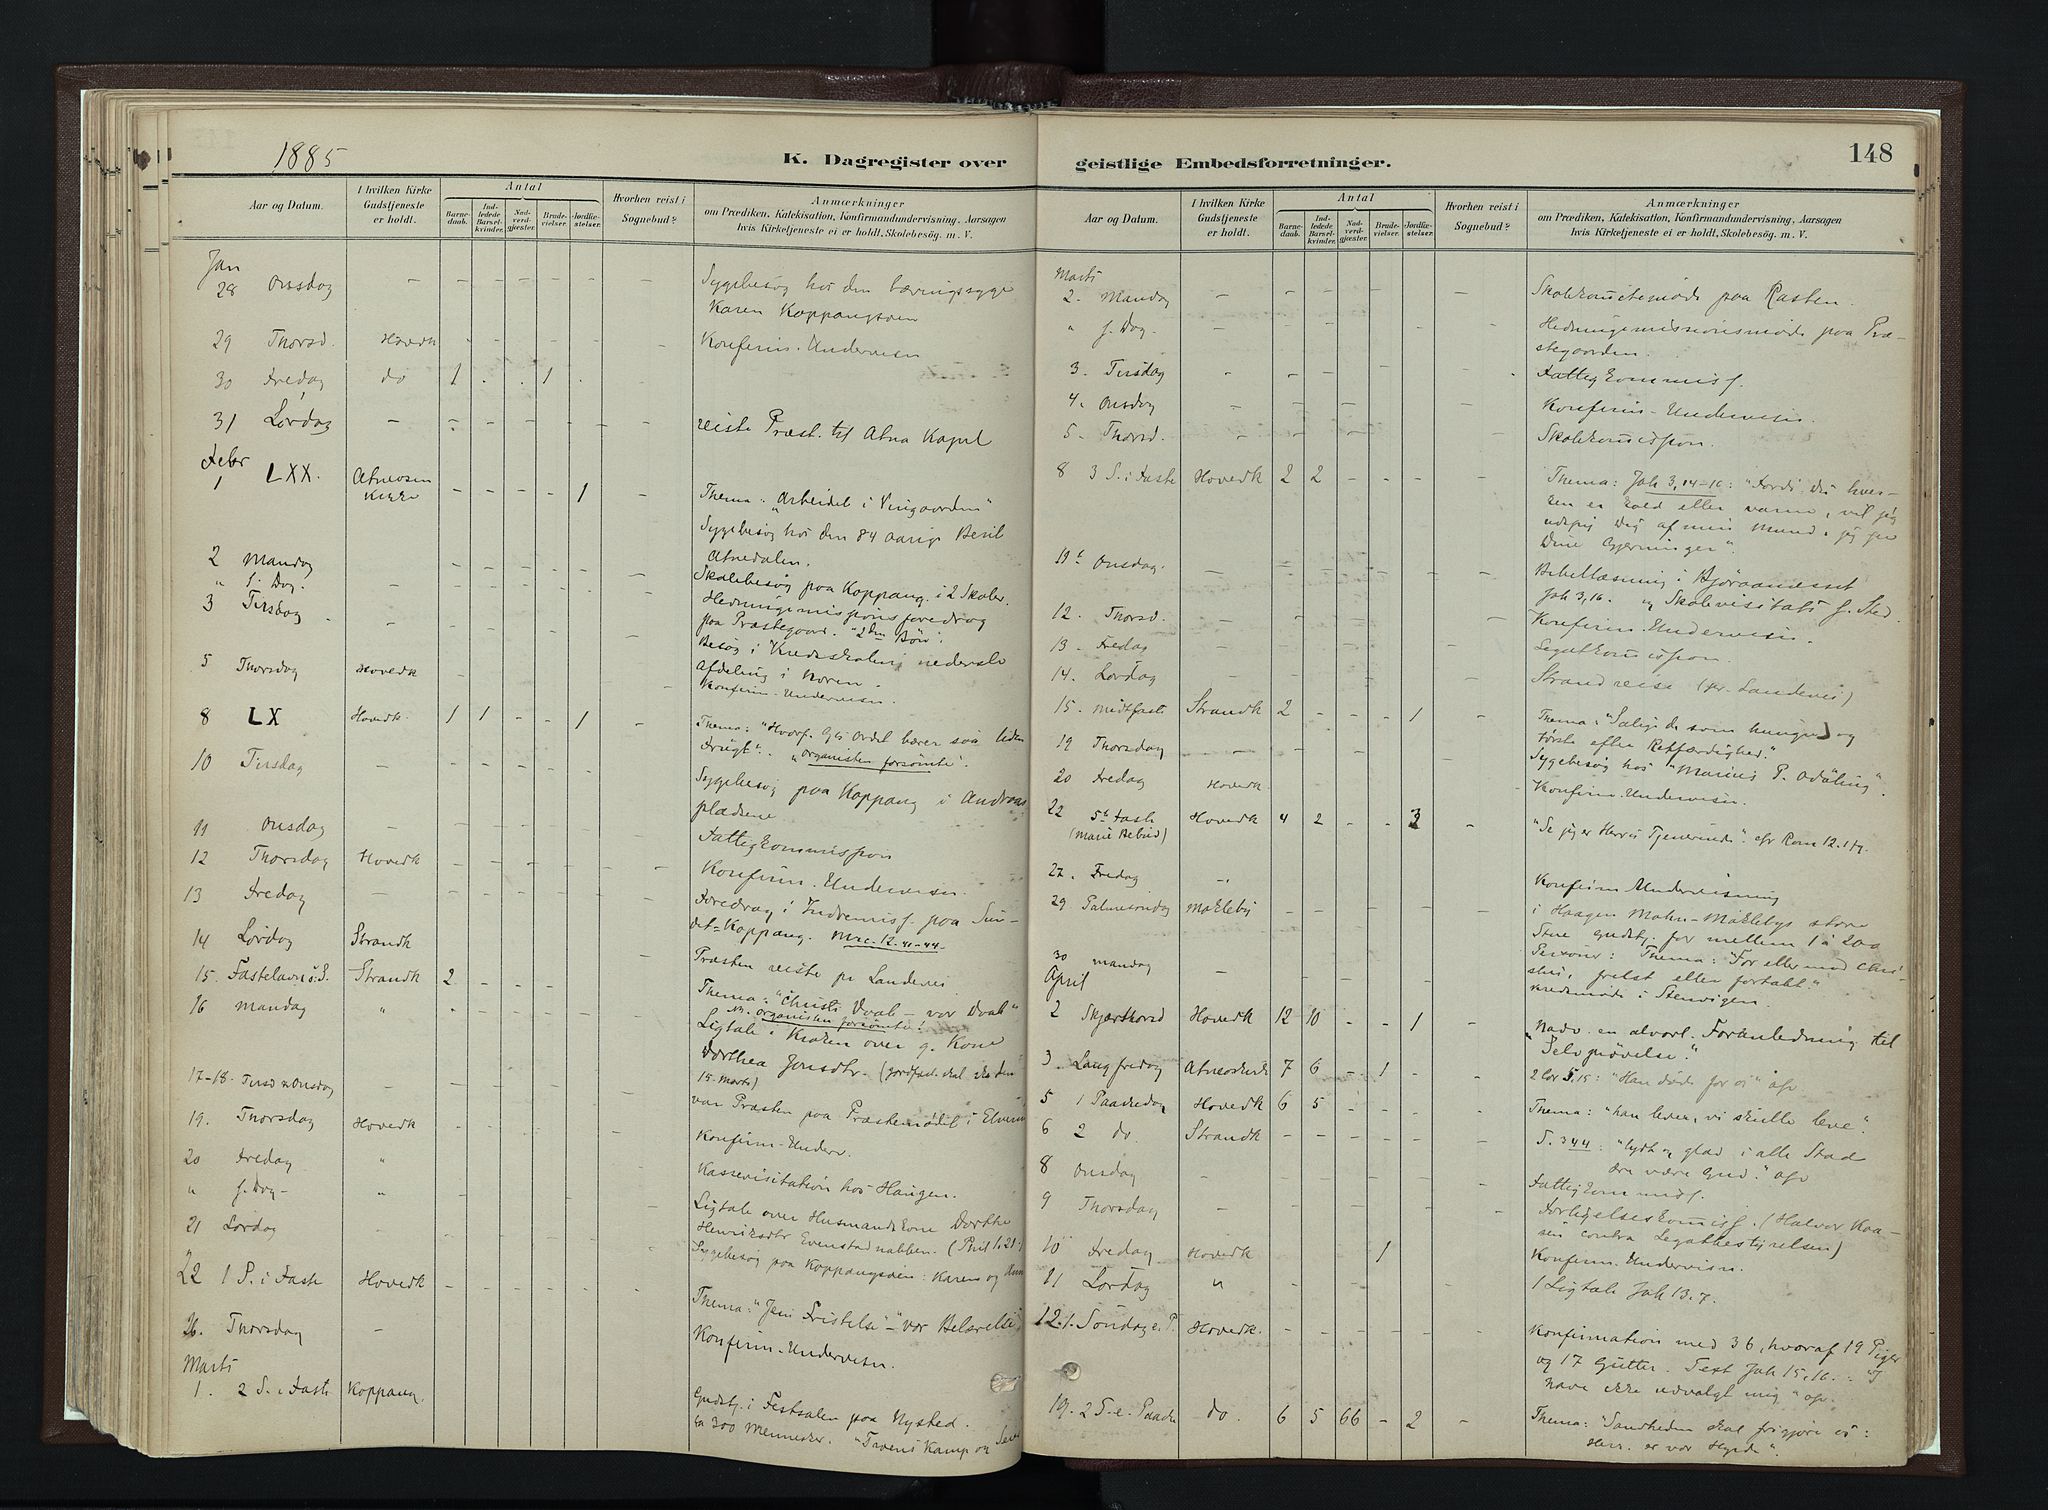 1885
K. Dagregister over
Aar og Datum.
I hvilken Kirke
Gudstjeneste
er holdt.
Antal
Barne-
daab.
Ind-
ledede
Barsel-
kvinder.
Nad-
verd-
gjester.
Brude-
vielser.
Jordfæ-
stelser.
Hvorhen reist i
Sognebud?
Anmærkninger
om Prædiken, Katekisation, Konfirmandundervisning, Aarsagen
hvis Kirketjeneste ei er holdt, Skolebesög. m. V.
Jan
28 Onsdag – – – – – – – Sygebesøg hos den tæringssyge
Karen Koppangsøen
29 Thorsd. Hovedk – – – – – – Konfirm. Undervisn
30 Fredag do 1 . . 1 . –
31 Lørdag – – – – – – – reiste Præst. til Atna Kapel
Febr
1 LXX. Atneosen
Kirke – – – – 1 – Thema: "Arbeidet i Vingaarden"
Sygebesøg hos den 84 aarige Beril
Atnedalen.
2 Mandag
" s. Dag. Skolebesøg paa Koppang i 2 Skoler.
3 Tirsdag Hedningemissionsforedrag
paa Præstegaard.
Besøg i Kredsskolens nederste
Afdeling i Koren.
5 Thorsdag Hovedk Konfirm. Undervisn.
8 LX Hovedk. 1 1 – – 1 – Thema: "Hvorf. Gs Ordet bærer saa liden
Frugt". "organisten forsømte".
10 Tirsdag – Sygebesøg paa Koppang i Andreas
pladsene
11 Onsdag Fattigkommission
12 Thorsdag Hovedk Konfirm. Undervisn.
13 Fredag – Foredrag i Indremisf. paa Sun-
det-Koppang. Mrc. 12.41-44.
14 Lørdag Strandk Præsten reiste pr Landevei
15. Fastelavns S. Strandk 2 – – – – – Thema: "Christi Daab – vor Daab"
NB. organisten forsømte!
16 Mandag " Ligtale i Kroken over g. Kone
Dorthea Jonsdtr. (Jordfæst. skal ske den
15. Marts)
17-18. Tirsd. & Onsdag var Præsten paa Præstemødet i Elverum
19. Thorsdag Hovedk Konfirm. Underv.
20 Fredag " Kassevisitation hos Haugen.
" s. Dag – " Ligtale over Husmandskone Dorthe
21 Lørdag Henriksdtr Evenstadnabben. (Phil 1.21)
Sygebesøg paa Koppangsøen: Karen og
22 1 S. i Fast Hovedk – – – – – – Thema: "Jesu Fristelse" – vor Belærelse
26. Thorsdag – Konfirm. Undervisn.
Marts
1. 2 S. i Fast Koppang. Gudstj. i Festsalen paa Nysted.
ca 300 Mennesker. "Troens Kamp og Seier
geistlige Embedsforretninger.
148
Aar og Datum.
I hvilken Kirke
Gudstjeneste
er holdt.
Antal
Barne-
daab.
Ind-
ledede
Barsel-
kvinder.
Nad-
verd-
gjester.
Brude-
vielser.
Jordfæ-
stelser.
Hvorhen reist i
Sognebud?
Anmærkninger
om Prædiken, Katekisation, Konfirmandundervisning, Aarsagen
hvis Kirketjeneste ei er holdt, Skolebesög. m. V.
Marts
2. Mandag – Skolekomitemøde paa Rasten
" s. Dag. – Hedningemissionsmøde paa Præ-
stegaarden.
3. Tirsdag Fattigkommisf.
4. Onsdag Konfirm. Undervisn.
5. Thorsd. Skolekommission.
8 3 S. i Faste Hovedk 2 2 – – – – Thema: Joh 3,14-16: "Fordi du hver-
ken er kold eller varm, vil jeg
udspy Dig af min Mund. jeg
Dine Gjerninger".
11te Onsdag. Bibellæsning i Bjøraanesset
Joh 3,16. og Skolevisitats s. Sted.
12. Thorsd. Konfirm. Undervisn.
13 – Fredag Legatkommission.
14. Lørdag Strandreise (pr. Landevei)
15. Midtfaste Strandk 2 – – – 1 – Thema: "Salige de som hungre og
tørste efter Retfærdighed".
19 Thorsdag Sygebesøg hos "Marius P. Odøling".
20 Fredag Hovedk. Konfirm. Undervisn.
22 5te Fast Hovedk 4 2 – – 3 – "Se jeg er Herrens Tjenerinde". ofr Rom 12.1 fg.
(Mariæ Bebud)
27. Fredag – Konfirm Undervisning
29 Palmesøndag Mokleby – i Haagen Mohn-Moklebys store
Stue Gudstj. for mellem 1 à 200
Personer: Thema: "For eller mod Chri-
stus, frelst eller fortabt."
30 Mandag – Kredsmøde i Stenvigen.
April
2 Skjærthorsd Hovedk 12 10 – – 1 – "Nadv. en alvorl. Foranledning til
Selvprøvelse."
3. Langfredag Atneoskirk 7 6 – 1 – – 2 Cor 5.15: "Han døde for os" ofv.
5 1 Paaskedag Hovedk 6 5 – – – – Thema: "han lever, vi skulle leve".
6 2 do. Strandk – S. 344: "lydt og glad i alle Stad
ære være Gud." ofv
8 Onsdag Fattigkommisf.
9 Thorsdag – Forligelseskommisf. (Halvor Kaa-
sen contra Legatbestyrelsen)
10 Fredag Hovedk 1 Konfirm. Undervisn.
11 Lørdag " 1 Ligtale Joh 13.7.
12. 1. Søndag e. P. Hovedk. Konfirmation med 36, hvoraf 19 Piger
og 17 Gutter. Text Joh 15,16.: "I
have ikke udvalgt mig" ofv.
19. 2 S. e. Paaske do. 6 5 66 – 2 – Thema: "Sandheden skal frigjøre os:
Herr. er vor Hyrde".